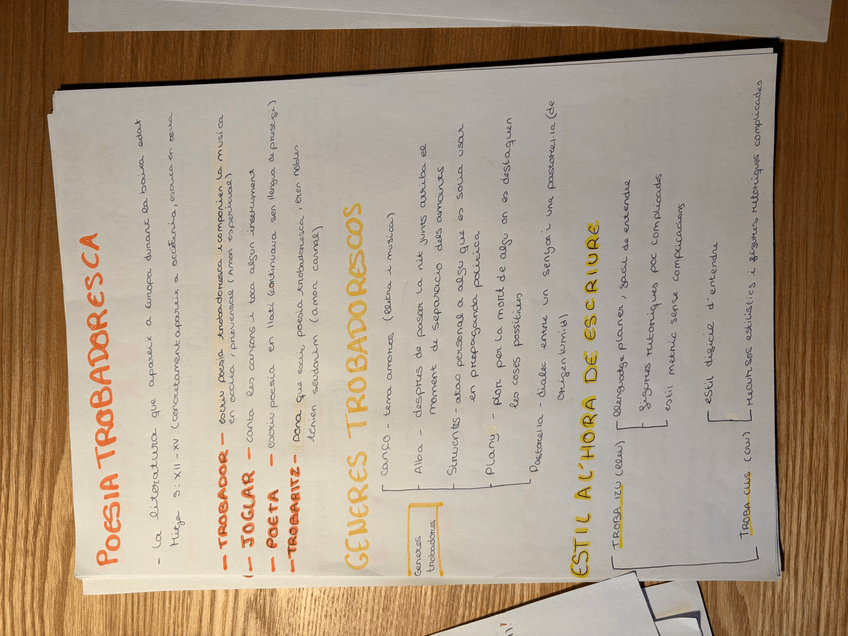 POESIA TROBADORESCA
- La literatura que apareix a Europa durant la baixa edat
Mitja S: XII - XV (concretament apareix a occitània, escrita en
- TROBADOR - escriu poesia trobadoresca i componien la musica
en occità, provensal (Amor espiritual)
- JOGLAR - canta les cançons i toca algun instrument
- POETA - escriu poesia en llatí (continuava sen llengua de prestigi)
- TROBARITZ - Dona que escriu poesia trobadoresca, eren nobles
tenien (amor carnal)
GENERES TROBADORESCOS
Generes
trobadorescos
Canço - tema amorós (lletra i musica)
Alba - despres de passar la nit junts arriba el
moment de separacio dels amants
Sirventès - atac personal a algu que es solia usar
en propaganda politica
Plany - plor per la mort de algu on es destaquen
les coses possitives
Pastorella - dialec entre un senyor i una pastorella (de
origen humid)
ESTIL A L'HORA DE ESCRIURE
TROBA (leu) llenguatge planer, facil de entendre
figures retoriques poc complicades
estil metric sense complicacions
TROBA CLUS (clus) estil dificil d'entendre
recursos estilistics i figures retoriques complicades